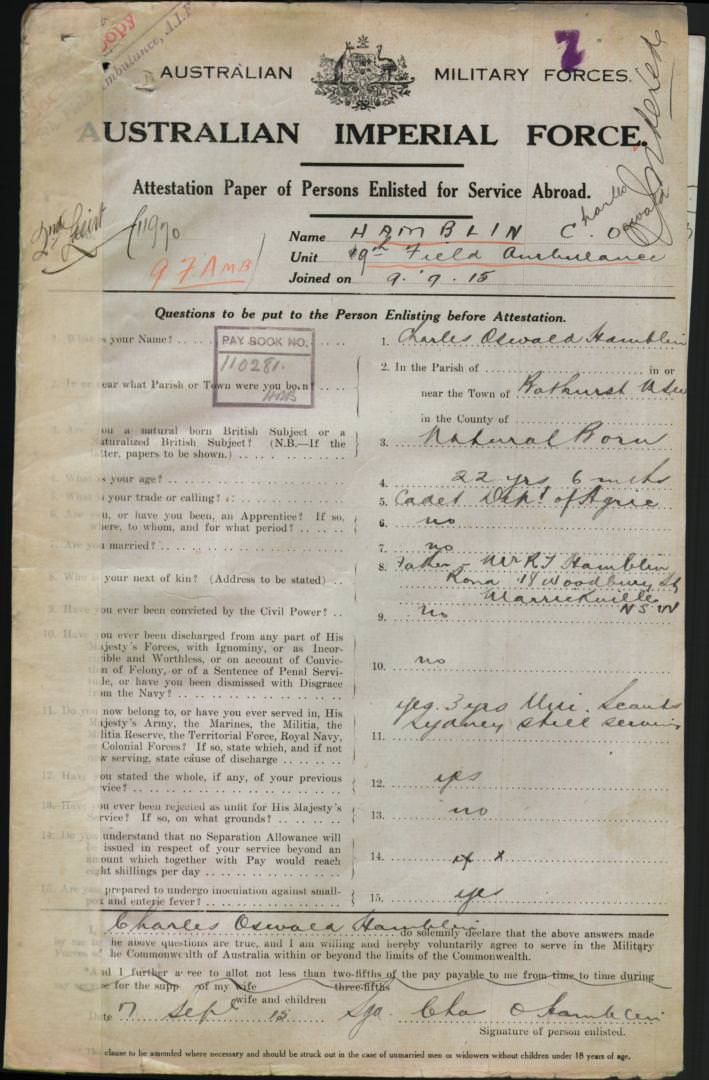 Copy
Ambulance, A.I.F.
AUSTRALIAN MILITARY FORCES.
AUSTRALIAN IMPERIAL FORCE.
Indexed
Attestation Paper of Persons Enlisted for Service Abroad.
11970
9 F AMB
Name HAMBLIN C. O Charles Oswald
Unit 9th Field Ambulance
Joined on 9.9.15
Questions to be put to the Person Enlisting before Attestation.
your Name? 1. Charles Oswald Hamblin
PAY BOOK NO.
110281.
2. In the Parish of in or
ear what Parish or Town were you born? near the Town of Bathurst NSW
in the County of
u a natural born British Subject or a
naturalized British Subject? (N.B.—If the 3. Natural Born
latter, papers to be shown.)
your age? 4. 22 yrs 6 mths
your trade or calling? 5. Cadet Dept of Agric
u, or have you been, an Apprentice? If so, 6. no
where, to whom, and for what period?
7. Are you married? 7. no
8. Who your next of kin? (Address to be stated) 8. Father - Mr R T Hamblin
Rona 18 Woodbury St
Marrickville NSW
9. Have you ever been convicted by the Civil Power? 9. no
10. Have you ever been discharged from any part of His
Majesty's Forces, with Ignominy, or as Incor-
rigible and Worthless, or on account of Convic-
tion of Felony, or of a Sentence of Penal Servi-
tude, or have you been dismissed with Disgrace 10. no
from the Navy?
11. Do you now belong to, or have you ever served in, His yes. 3 yrs Uni. Scouts
Majesty's Army, the Marines, the Militia, the Sydney still serving
Militia Reserve, the Territorial Force, Royal Navy, 11.
Colonial Forces? If so, state which, and if not
now serving, state cause of discharge
12. Have you stated the whole, if any, of your previous 12. yes
service?
13. Have you ever been rejected as unfit for His Majesty's 13. no
Service? If so, on what grounds?
14. Do you understand that no Separation Allowance will
be issued in respect of your service beyond an 14. x x
amount which together with Pay would reach
eight shillings per day
15. Are you prepared to undergo inoculation against small- 15. yes
pox and enteric fever?
I, Charles Oswald Hamblin do solemnly declare that the above answers made
by me to the above questions are true, and I am willing and hereby voluntarily agree to serve in the Military
Forces of the Commonwealth of Australia within or beyond the limits of the Commonwealth.
*And I further agree to allot not less than two-fifths of the pay payable to me from time to time during
three-fifths
my service for the support of my wife
wife and children
Date 7 Sept 15 Sgd. Chas O Hamblin
Signature of person enlisted.
*This clause to be amended where necessary and should be struck out in the case of unmarried men or widowers without children under 18 years of age.